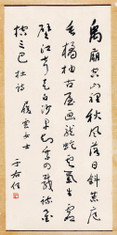 禹廟空山裡秋風落日斜荒庭
垂橘柚古屋畫龍蛇雲氣生虛
壁江聲走白沙早知乘四載疏鑿
控三巴 杜詩 雲女士
于右任